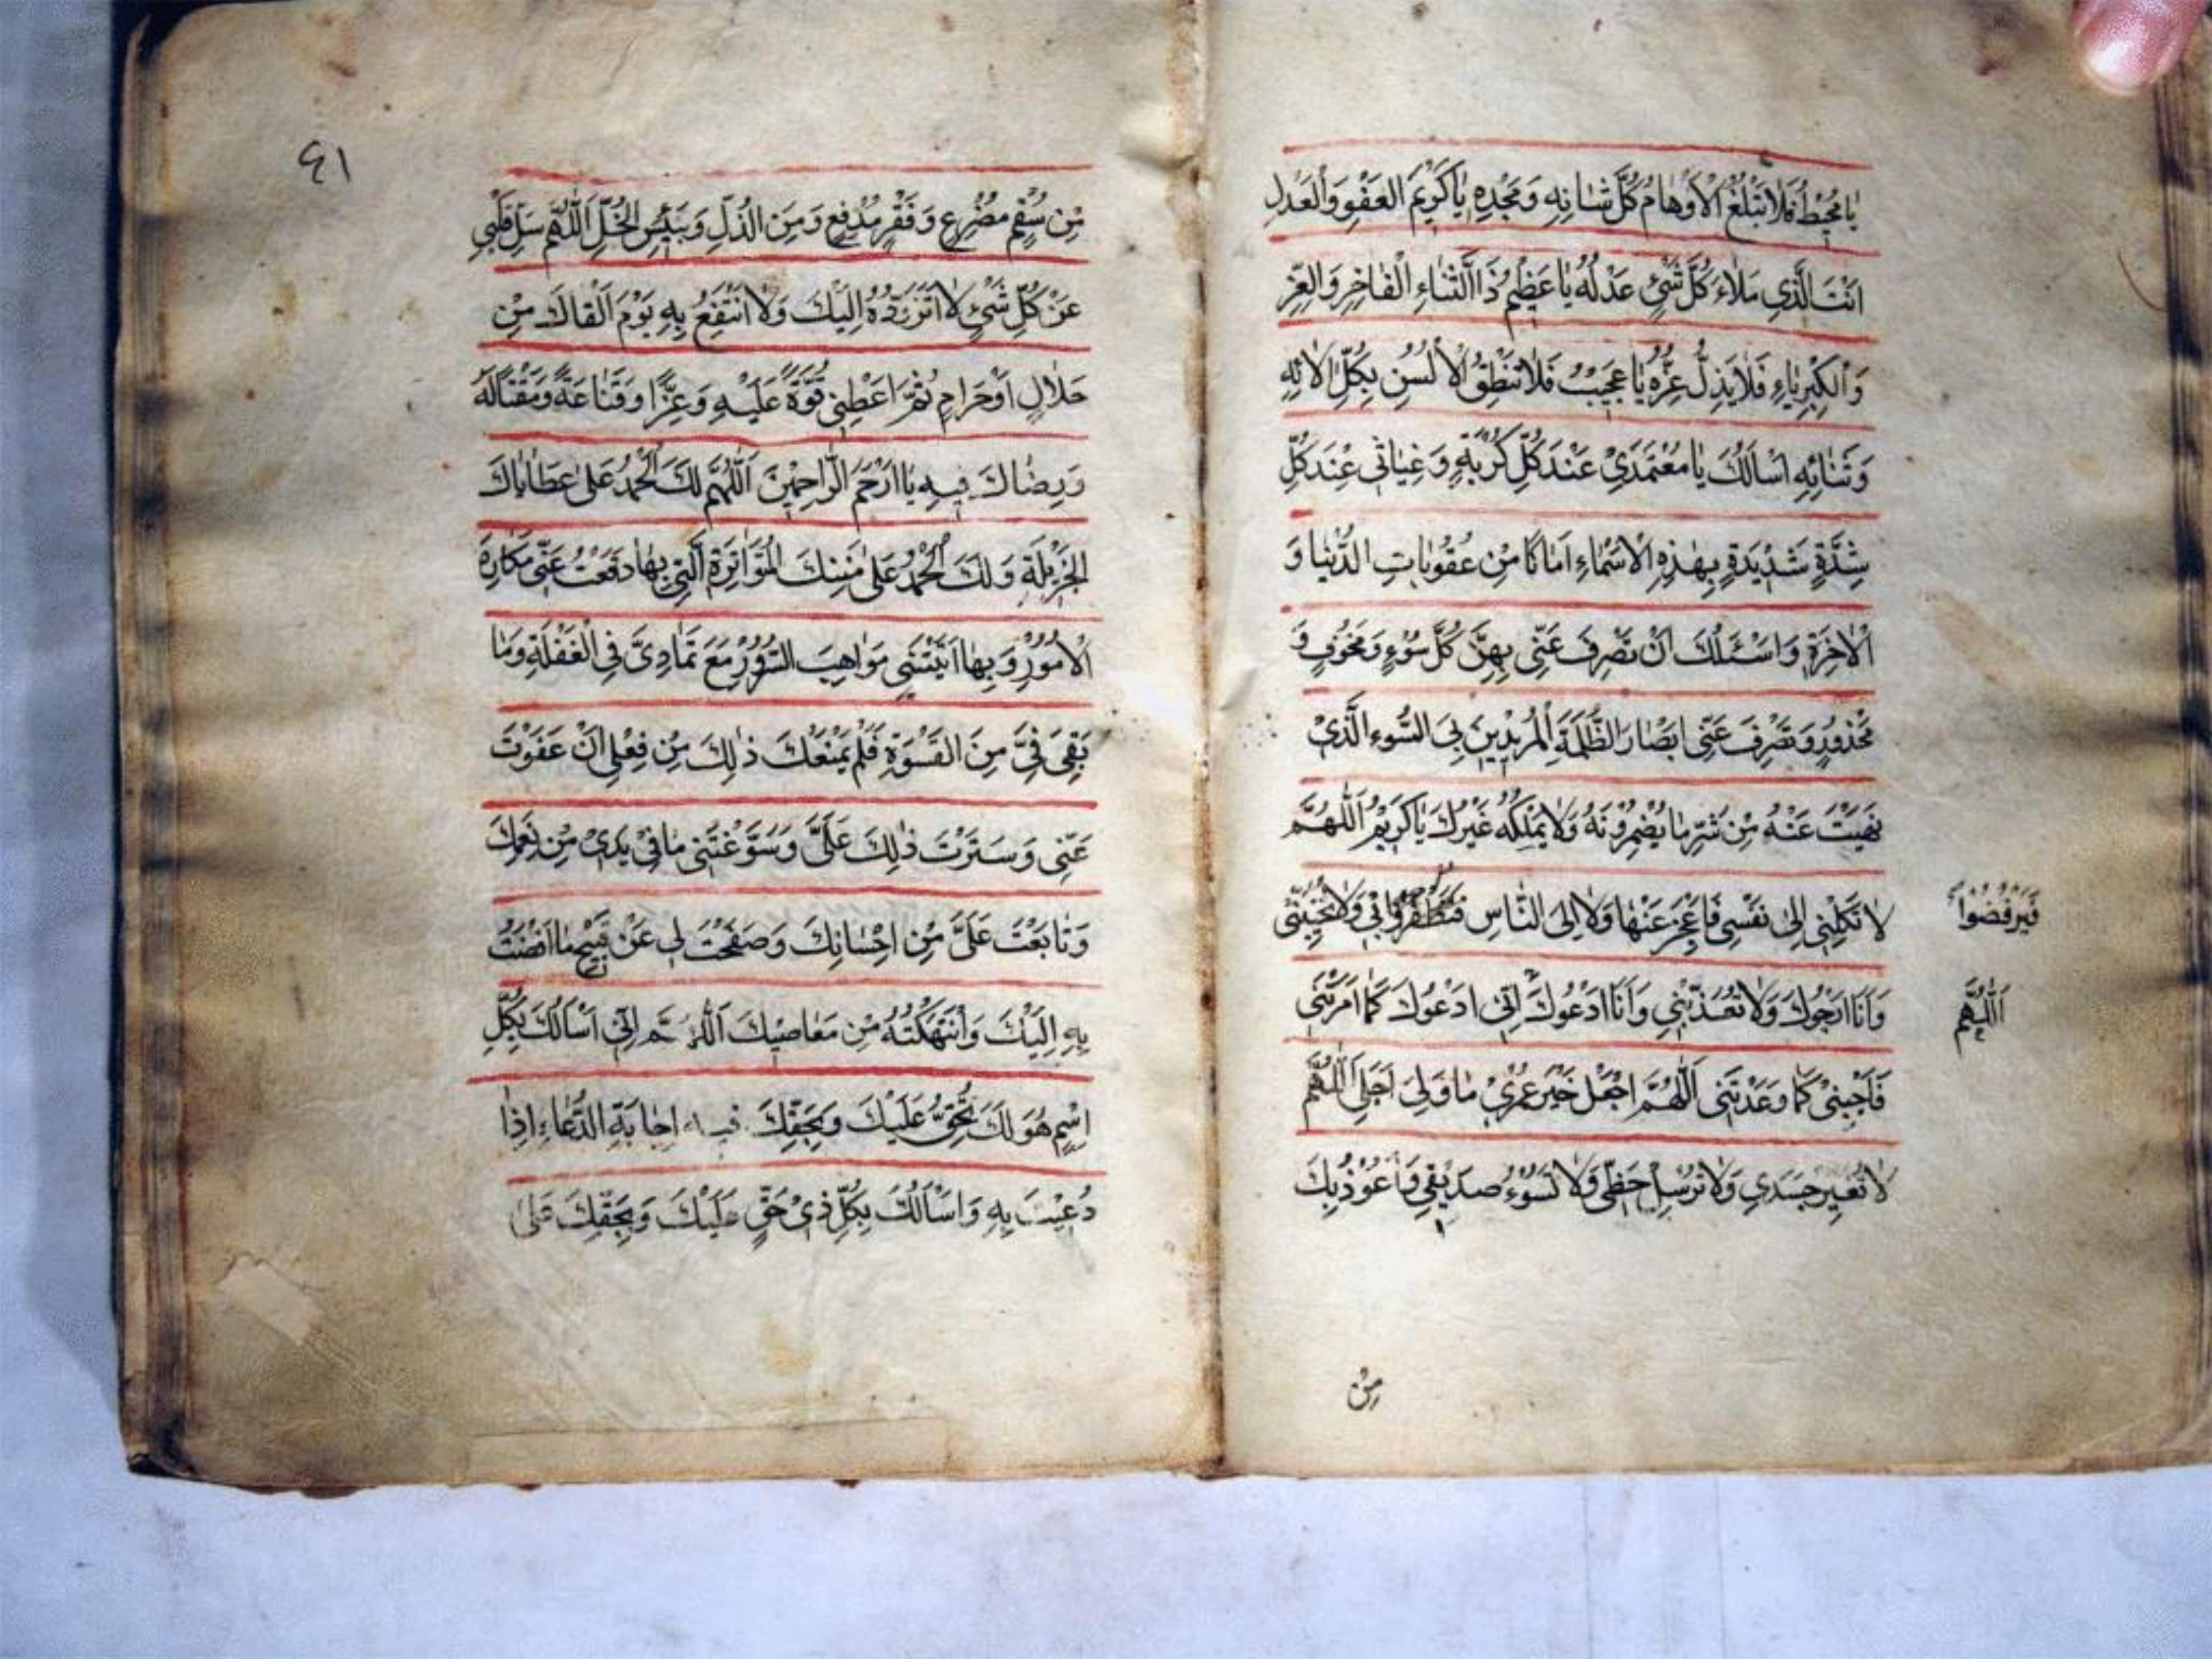 يَا مُحِيطُ فَلَا تَبْلُغُ الْأَوْهَامُ كُلَّ شَانِهِ وَمَجْدِهِ يَا كَرِيمَ العَفْوِ وَالْعَدْلِ
اَنْتَ الَّذِي مَلَاءَ كُلَّ شَيْءٍ عَدْلُهُ يَا عَظِيمُ ذَا الثَّنَاءِ الْفَاخِرِ وَالعِزِّ
وَالْكِبْرِيَاءِ فَلَا يَذِلُّ عِزُّهُ يَا عَجِيبُ فَلَا تَنْطِقُ الْأَلْسُنُ بِكُلِّ الَائِهِ
وَثَنَائِهِ اَسْاَلُكَ يَا مُعْتَمَدِيْ عِنْدَ كُلِّ كُرْبَةٍ وَغِيَاثِي عِنْدَ كُلِّ
شِدَّةٍ شَدِيْدَةٍ بِهٰذِهِ الْاَسْمَاءِ اَمَانًا مِنْ عُقُوبَاتِ الدُّنْيَا وَ
الْاٰخِرَةِ وَاَسْئَلُكَ اَنْ تَصْرِفَ عَنِّى بِهِنَّ كُلَّ سُوْءٍ وَمَخُوفٍ وَ
مَحْذُورٍ وَتَصْرِفَ عَنِّى اَبْصَارَ الظَّلَمَةِ الْمُرِيْدِيْنَ بِىَ السُّوءِ الَّذِىْ
نَهَيْتَ عَنْهُ مِنْ شَرِّ مَا يُضْمِرُوْنَهُ وَلَا يَمْلِكُهُ غَيْرُكَ يَا كَرِيْمُ اَللّٰهُمَّ
لَا تَكِلْنِي اِلٰى نَفْسِى فَاَعْجِزَ عَنْهَا وَلَا اِلَى النَّاسِ فَيَظْفَرُوْا بِي وَلَا تُخَيِّبْنِي
فَيَرْفُضُوا
وَاَنَا اَرْجُوْكَ وَلَا تُعَذِّبْنِي وَاَنَا اَدْعُوكَ اِنِّى اَدْعُوكَ كَمَا اَمَرْتَنِى
اَللّٰهُمَّ
فَاَجِبْنِىْ كَمَا وَعَدْتَنِى اَللّٰهُمَّ اجْعَلْ خَيْرَ عُمُرِيْ مَا وَلِىَ اَجَلِى اَللّٰهُمَّ
لَا تُغَيِّرْ جَسَدِي وَلَا تُرْسِلْ حَظِّى وَلَا تَسُوْءْ صَدِيْقِي وَاَعُوْذُ بِكَ
مِنْ
٤١
مِنْ سُقْمٍ مُضْرِعٍ وَفَقْرٍ مُدْقِعٍ وَمِنَ الذُّلِّ وَبِئْسَ الْخِلِّ اَللّٰهُمَّ سَلِّ قَلْبِي
عَنْ كُلِّ شَيْءٍ لَا اَتَزَوَّدُهُ اِلَيْكَ وَلَا اَنْتَفِعُ بِهِ يَوْمَ اَلْقَاكَ مِنْ
حَلَالٍ اَوْ حَرَامٍ ثُمَّ اَعْطِنِي قُوَّةً عَلَيْهِ وَعِزًّا وَقَنَاعَةً وَمَقْتًا لَهُ
وَرِضَاكَ فِيهِ يَا اَرْحَمَ الرَّاحِمِيْنَ اَللّٰهُمَّ لَكَ الْحَمْدُ عَلٰى عَطَايَاكَ
الْجَزِيْلَةِ وَلَكَ الْحَمْدُ عَلٰى مِنَنِكَ الْمُتَوَاتِرَةِ الَّتِي بِهَا دَفَعْتَ عَنِّى مَكَارِهَ
الْاُمُوْرِ وَبِهَا اٰتَيْتَنِى مَوَاهِبَ السُّرُوْرِ مَعَ تَمَادِىَّ فِي الْغَفْلَةِ وَمَا
بَقِىَ فِىَّ مِنَ الْقَسْوَةِ فَلَمْ يَمْنَعْكَ ذٰلِكَ مِنْ فِعْلِى اَنْ عَفَوْتَ
عَنِّى وَسَتَرْتَ ذٰلِكَ عَلَىَّ وَسَوَّغْتَنِى مَا فِيْ يَدِىْ مِنْ نِعَمِكَ
وَتَابَعْتَ عَلَىَّ مِنْ اِحْسَانِكَ وَصَفَحْتَ لِى عَنْ قَبِيْحِ مَا اَفْضَيْتُ
بِهِ اِلَيْكَ وَانْتَهَكْتُهُ مِنْ مَعَاصِيْكَ اَللّٰهُمَّ اِنِّى اَسْاَلُكَ بِكُلِّ
اِسْمٍ هُوَ لَكَ يَحِقُّ عَلَيْكَ فِيهِ اِجَابَةُ الدُّعَاءِ اِذَا
دُعِيْتَ بِهِ وَاَسْاَلُكَ بِكُلِّ ذِىْ حَقٍّ عَلَيْكَ وَبِحَقِّكَ عَلٰى